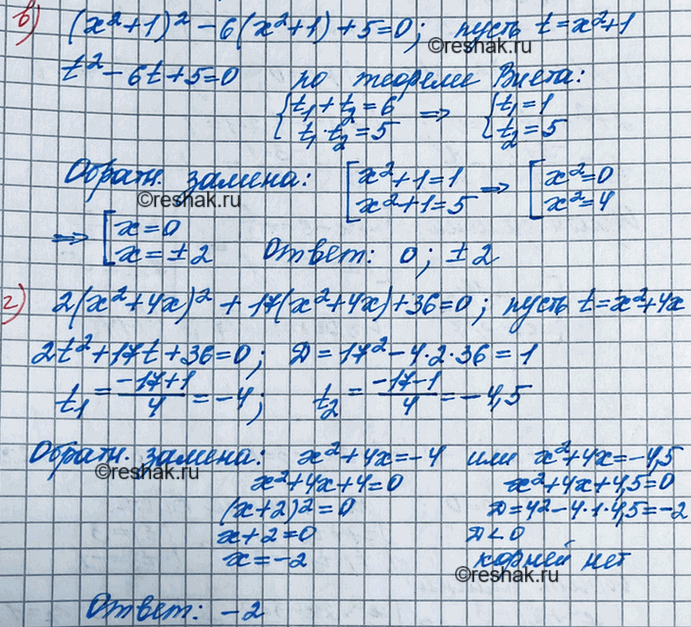 в) (x²+1)² - 6(x²+1) + 5 = 0; пусть t = x²+1
©reshak.ru
t² - 6t + 5 = 0 по теореме Виета:
{t₁ + t₂ = 6 ⇒ {t₁ = 1
t₁ · t₂ = 5 t₂ = 5
Обратн. замена: [x²+1=1 ⇒ [x²=0
x²+1=5 x²=4
©reshak.ru
⇒ [x=0
x=±2 Ответ: 0; ±2
г) 2(x²+4x)² + 17(x²+4x) + 36 = 0; пусть t = x²+4x
2t² + 17t + 36 = 0; D = 17² - 4·2·36 = 1
t₁ = (-17+1)/4 = -4; t₂ = (-17-1)/4 = -4,5
Обратн. замена: x²+4x=-4 или x²+4x=-4,5
©reshak.ru
x²+4x+4=0 x²+4x+4,5=0
(x+2)²=0 D=4²-4·1·4,5=-2
x+2=0 D<0
x=-2 корней нет
©reshak.ru
Ответ: -2